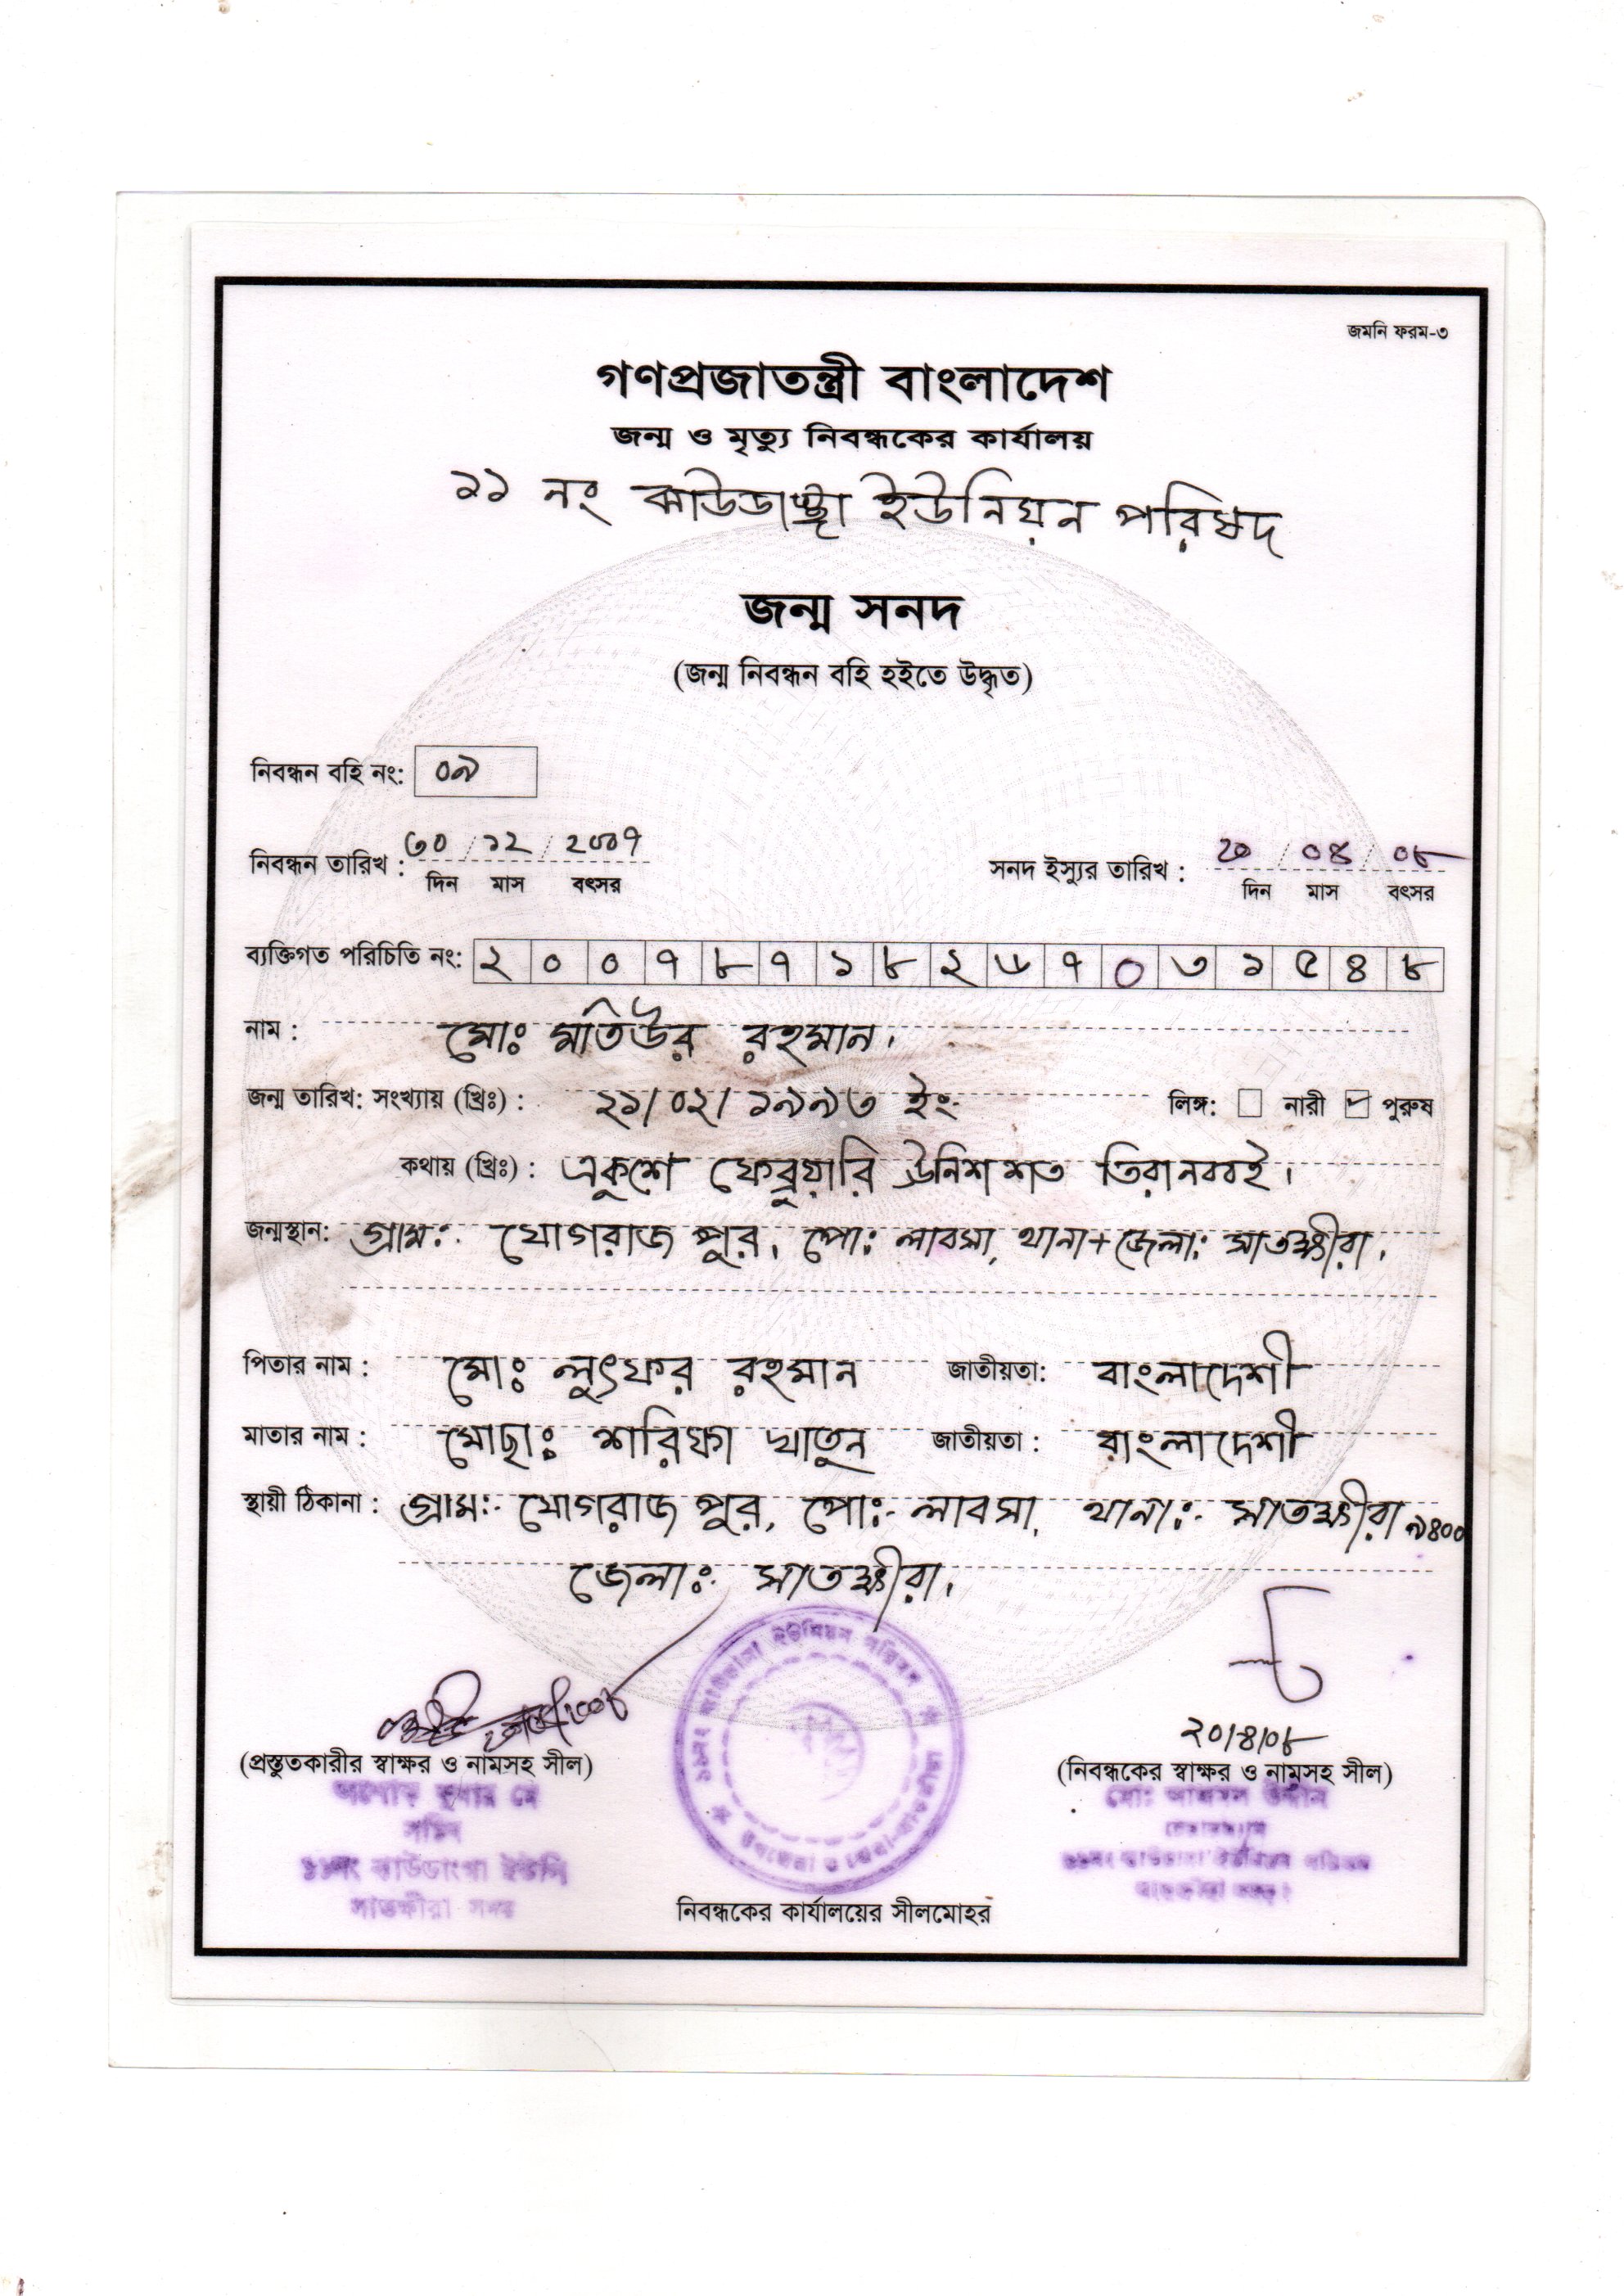 জমনি ফরম-৩
গণপ্রজাতন্ত্রী বাংলাদেশ
জন্ম ও মৃত্যু নিবন্ধকের কার্যালয়
১১ নং ঝাউডাঙ্গা ইউনিয়ন পরিষদ
জন্ম সনদ
(জন্ম নিবন্ধন বহি হইতে উদ্ধৃত)
নিবন্ধন বহি নং: ০৯
নিবন্ধন তারিখ : ৩০ / ১২ / ২০০৭ সনদ ইস্যুর তারিখ : ২০ / ০৪ / ০৮
দিন মাস বৎসর দিন মাস বৎসর
ব্যক্তিগত পরিচিতি নং: ২ ০ ০ ৭ ৮ ৭ ১ ৮ ২ ৬ ৭ ০ ৩ ১ ৫ ৪ ৮
নাম : মোঃ মতিউর রহমান।
জন্ম তারিখ: সংখ্যায় (খ্রিঃ) : ২১/ ০২/ ১৯৯৩ ইং লিঙ্গ: নারী পুরুষ
কথায় (খ্রিঃ) : একুশে ফেব্রুয়ারি উনিশশত তিরানববই।
জন্মস্থান: গ্রাম:- যোগরাজ পুর, পো: লাবসা, থানা+জেলা: সাতক্ষীরা।
পিতার নাম : মোঃ লুৎফর রহমান জাতীয়তা: বাংলাদেশী
মাতার নাম : মোছাঃ শারিফা খাতুন জাতীয়তা : বাংলাদেশী
স্থায়ী ঠিকানা : গ্রাম:- যোগরাজ পুর, পো:- লাবসা, থানা:- সাতক্ষীরা ৯৪০০
জেলা:- সাতক্ষীরা।
২০/৪/০৮
(প্রস্তুতকারীর স্বাক্ষর ও নামসহ সীল) (নিবন্ধকের স্বাক্ষর ও নামসহ সীল)
সচিব
১১নং ঝাউডাংগা ইউপি
সাতক্ষীরা সদর
১১নং ঝাউডাঙ্গা ইউনিয়ন পরিষদ
নিবন্ধকের কার্যালয়ের সীলমোহর